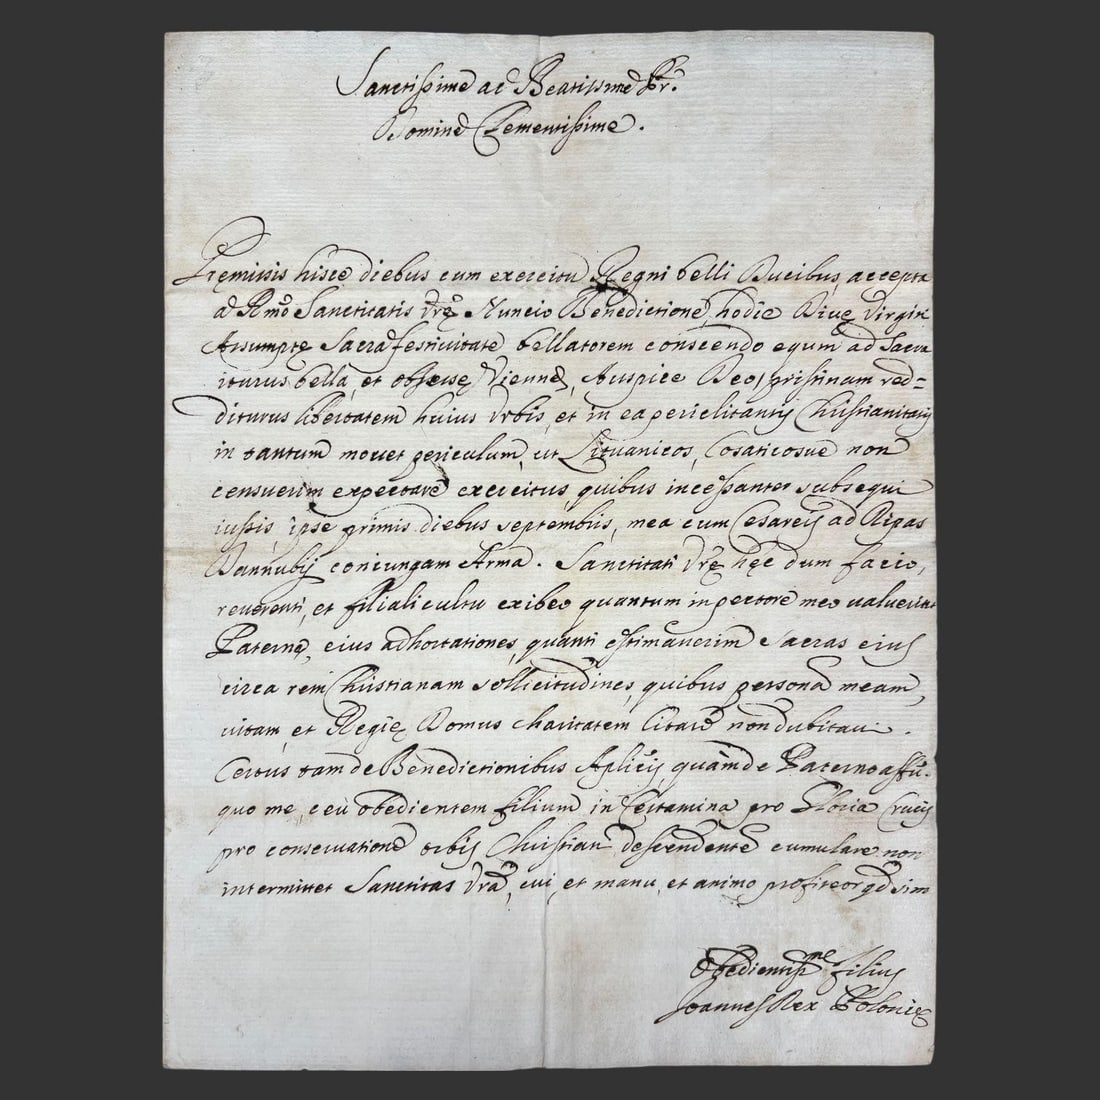 Sanctissime ac Beatissime Pr.
Domine Clementissime.
Premissis hisce diebus cum exercitu Regni belli Ducibus, accepta
a Rmo Sanctitatis Vrę Nuncio Benedictione, hodie Divę Virgin
Assumptę Sacra festivitate bellatorem conscendo equm ad Sacra
iturus bella, et obsessę Viennę, Auspice Deo, pristinam red=
diturus libertatem huius Urbis, et in ea periclitantis Christianitatis
in tantum movet periculum, ut Lituanicos, Cosaticosve non
censuerim expectare exercitus, quibus incessanter subsequi
iussis, ipse primis diebus septembris, mea cum Cesareis ad Ripas
Dannubij coniungam Arma. Sanctitati Vrę hęc dum facio,
reverenti, et filiali cultu exibeo quantum in pectore meo valuerint
Paternę, eius adhortationes, quanti estimaverim sacras eius
circa rem Christianam sollicitudines, quibus persona meam,
vitam, et Regię Domus charitatem litare non dubitavi.
Certus tam de Benedictionibus Aplicis, quàm de Paterno affū.
quo me, ceù obedientem filium in Certamina pro Gloria Crucis
pro conservatione orbis Christian descendente cumulare non
intermittet Sanctitas Vra, cui et manu, et animo profiteor qd sim
Obedientissme filius
Joannes Rex Polonię